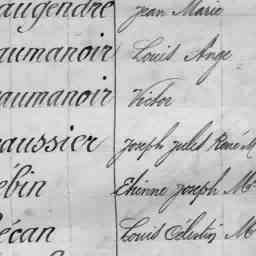 augendre Jean Marie
aumanoir Louis Ange
aumanoir Victor
aussier Joseph Jules René M
ébin Etienne Joseph M
écan Louis Célestin M